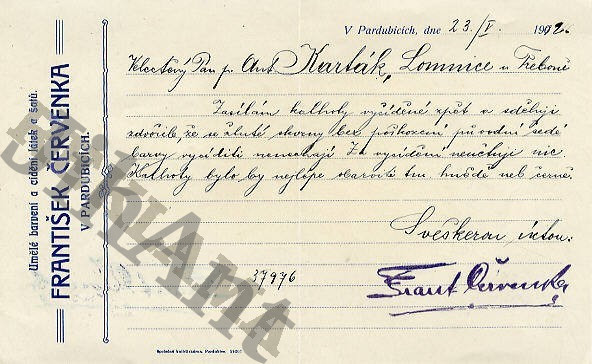 Umělé barvení a čištění látek a šatů.
FRANTIŠEK ČERVENKA
V PARDUBICÍCH.
V Pardubicích, dne 23./I. 1912.
Pan p. Ant. Karták, Lomnice u Třeboně
Zasílám kalhoty vyčištěné zpět a sděluji
zdvořile, že se žluté skvrny bez poškození původní šedé
barvy vyčistiti nenechají Za vyčištění neúčtuji nic.
Kalhoty bylo by nejlépe obarviti tm. hnědě neb černě.
S veškerou úctou:
37976
Frant. Červenka
AntikMiklík